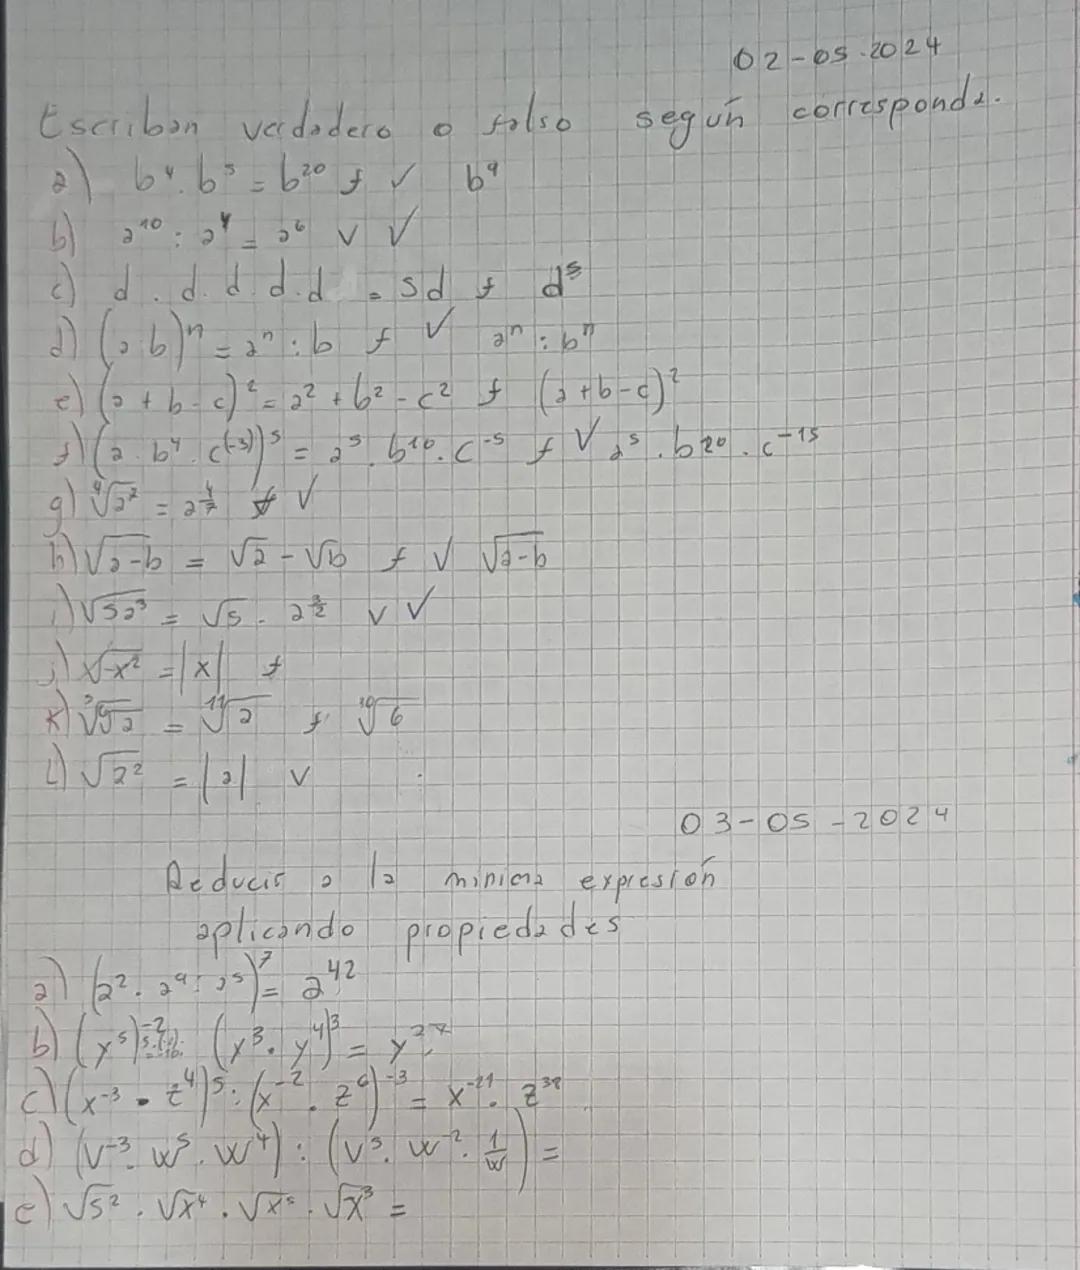 02-05-2024
Escriban verdadero o falso según corresponda.
a) b⁴ . b⁵ = b²⁰ f ✓ b⁹
b) a¹⁰ : a⁴ = a⁶ v ✓
c) d . d . d . d . d = 5d f d⁵
d) (a b)ⁿ = aⁿ : b f ✓ aⁿ : bⁿ
e) (a + b - c)² = a² + b² - c² f (a + b - c)²
f) (a . b⁴ . c⁽⁻³⁾)⁵ = a⁵ . b¹⁰ . c⁻⁵ f ✓ a⁵ . b²⁰ . c⁻¹⁵
g) = f ✓
h) √a-b = √a - √b f ✓ √a-b
i) √5a³ = √5 . a^3/2 v ✓
j) √-x² = |x| f
k) = ¹¹√a f ¹⁰√6
l) √a² = |a| v
03-05-2024
Reducir a la minima expresión
aplicando propiedades
a) (a² . a⁹ : a⁵)⁷ = a⁴²
b) (x⁵)⁻² (x³ . y⁴)³ =
c) (x⁻³ . z⁴)⁵ : (x⁻² . z⁶)⁻³ = x⁻²¹ . z³⁸
d) (v⁻³ . w⁵ . w⁴) : (v³ . w⁻² . 1/w) =
e) √5² . √x⁴ . √x⁵ . √x³ =